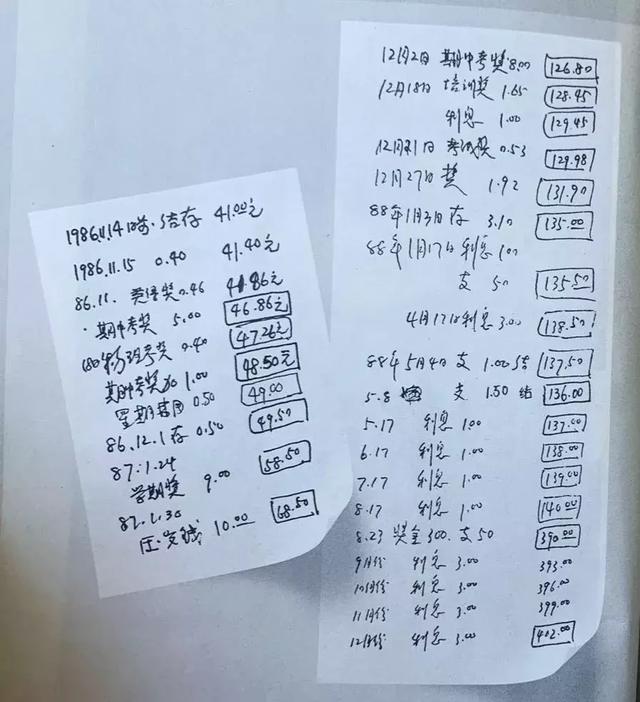 1986.11.14日前·结存 41.00元
1986.11.15 0.40 41.40元
86.11. 英语奖0.46 41.86元
·期中考奖 5.00 46.86元
考奖 0.40 47.26元
期中考奖加 1.00 48.50元
星期 0.50 49.00
86.12.1存 0.50 49.50
87.1.24
学期奖 9.00 58.50
87.1.30
压岁钱 10.00 68.50
12月2日 期中考奖 8.00 126.80
12月18日 培训奖 1.65 128.45
利息 1.00 129.45
12月21日 考试奖 0.53 129.98
12月27日 奖 1.92 131.90
88年1月3日存 3.10 135.00
88年1月17日利息 1.00
支 50 135.50
4月17日利息 3.00 138.50
88年5月4日支 1.00 结 137.50
5.8 支 1.50 结 136.00
5.17 利息 1.00 137.00
6.17 利息 1.00 138.00
7.17 利息 1.00 139.00
8.17 利息 1.00 140.00
8.23 奖金300. 支50 390.00
9月份 利息 3.00 393.00
10月份 利息 3.00 396.00
11月份 利息 3.00 399.00
12月份 利息 3.00 402.00